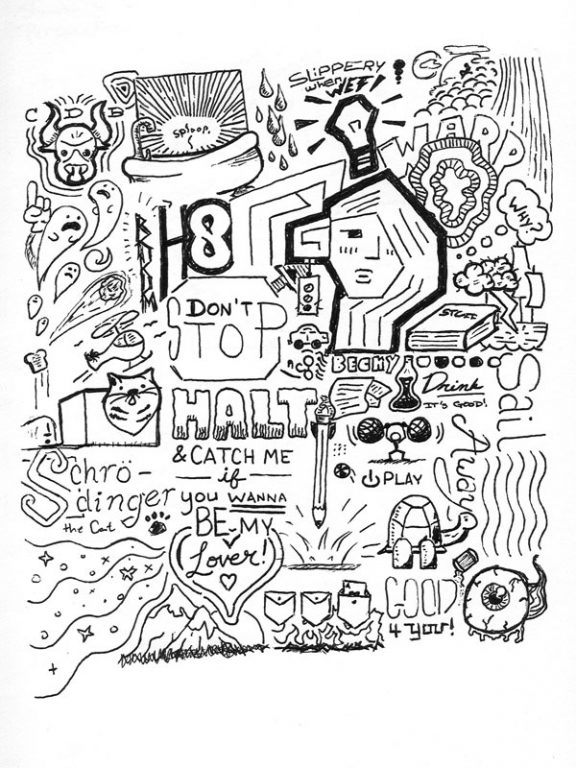 SLIPPERY
when
WET!
sploop.
WARP
WHY?
H8
DON'T
STOP
BECKY
Drink
IT'S GOOD!
Sail
Away
HALT
& CATCH ME
if
you WANNA
BE MY
Lover!
PLAY
Schrö-
dinger
the Cat
GOOD
4 YOU!